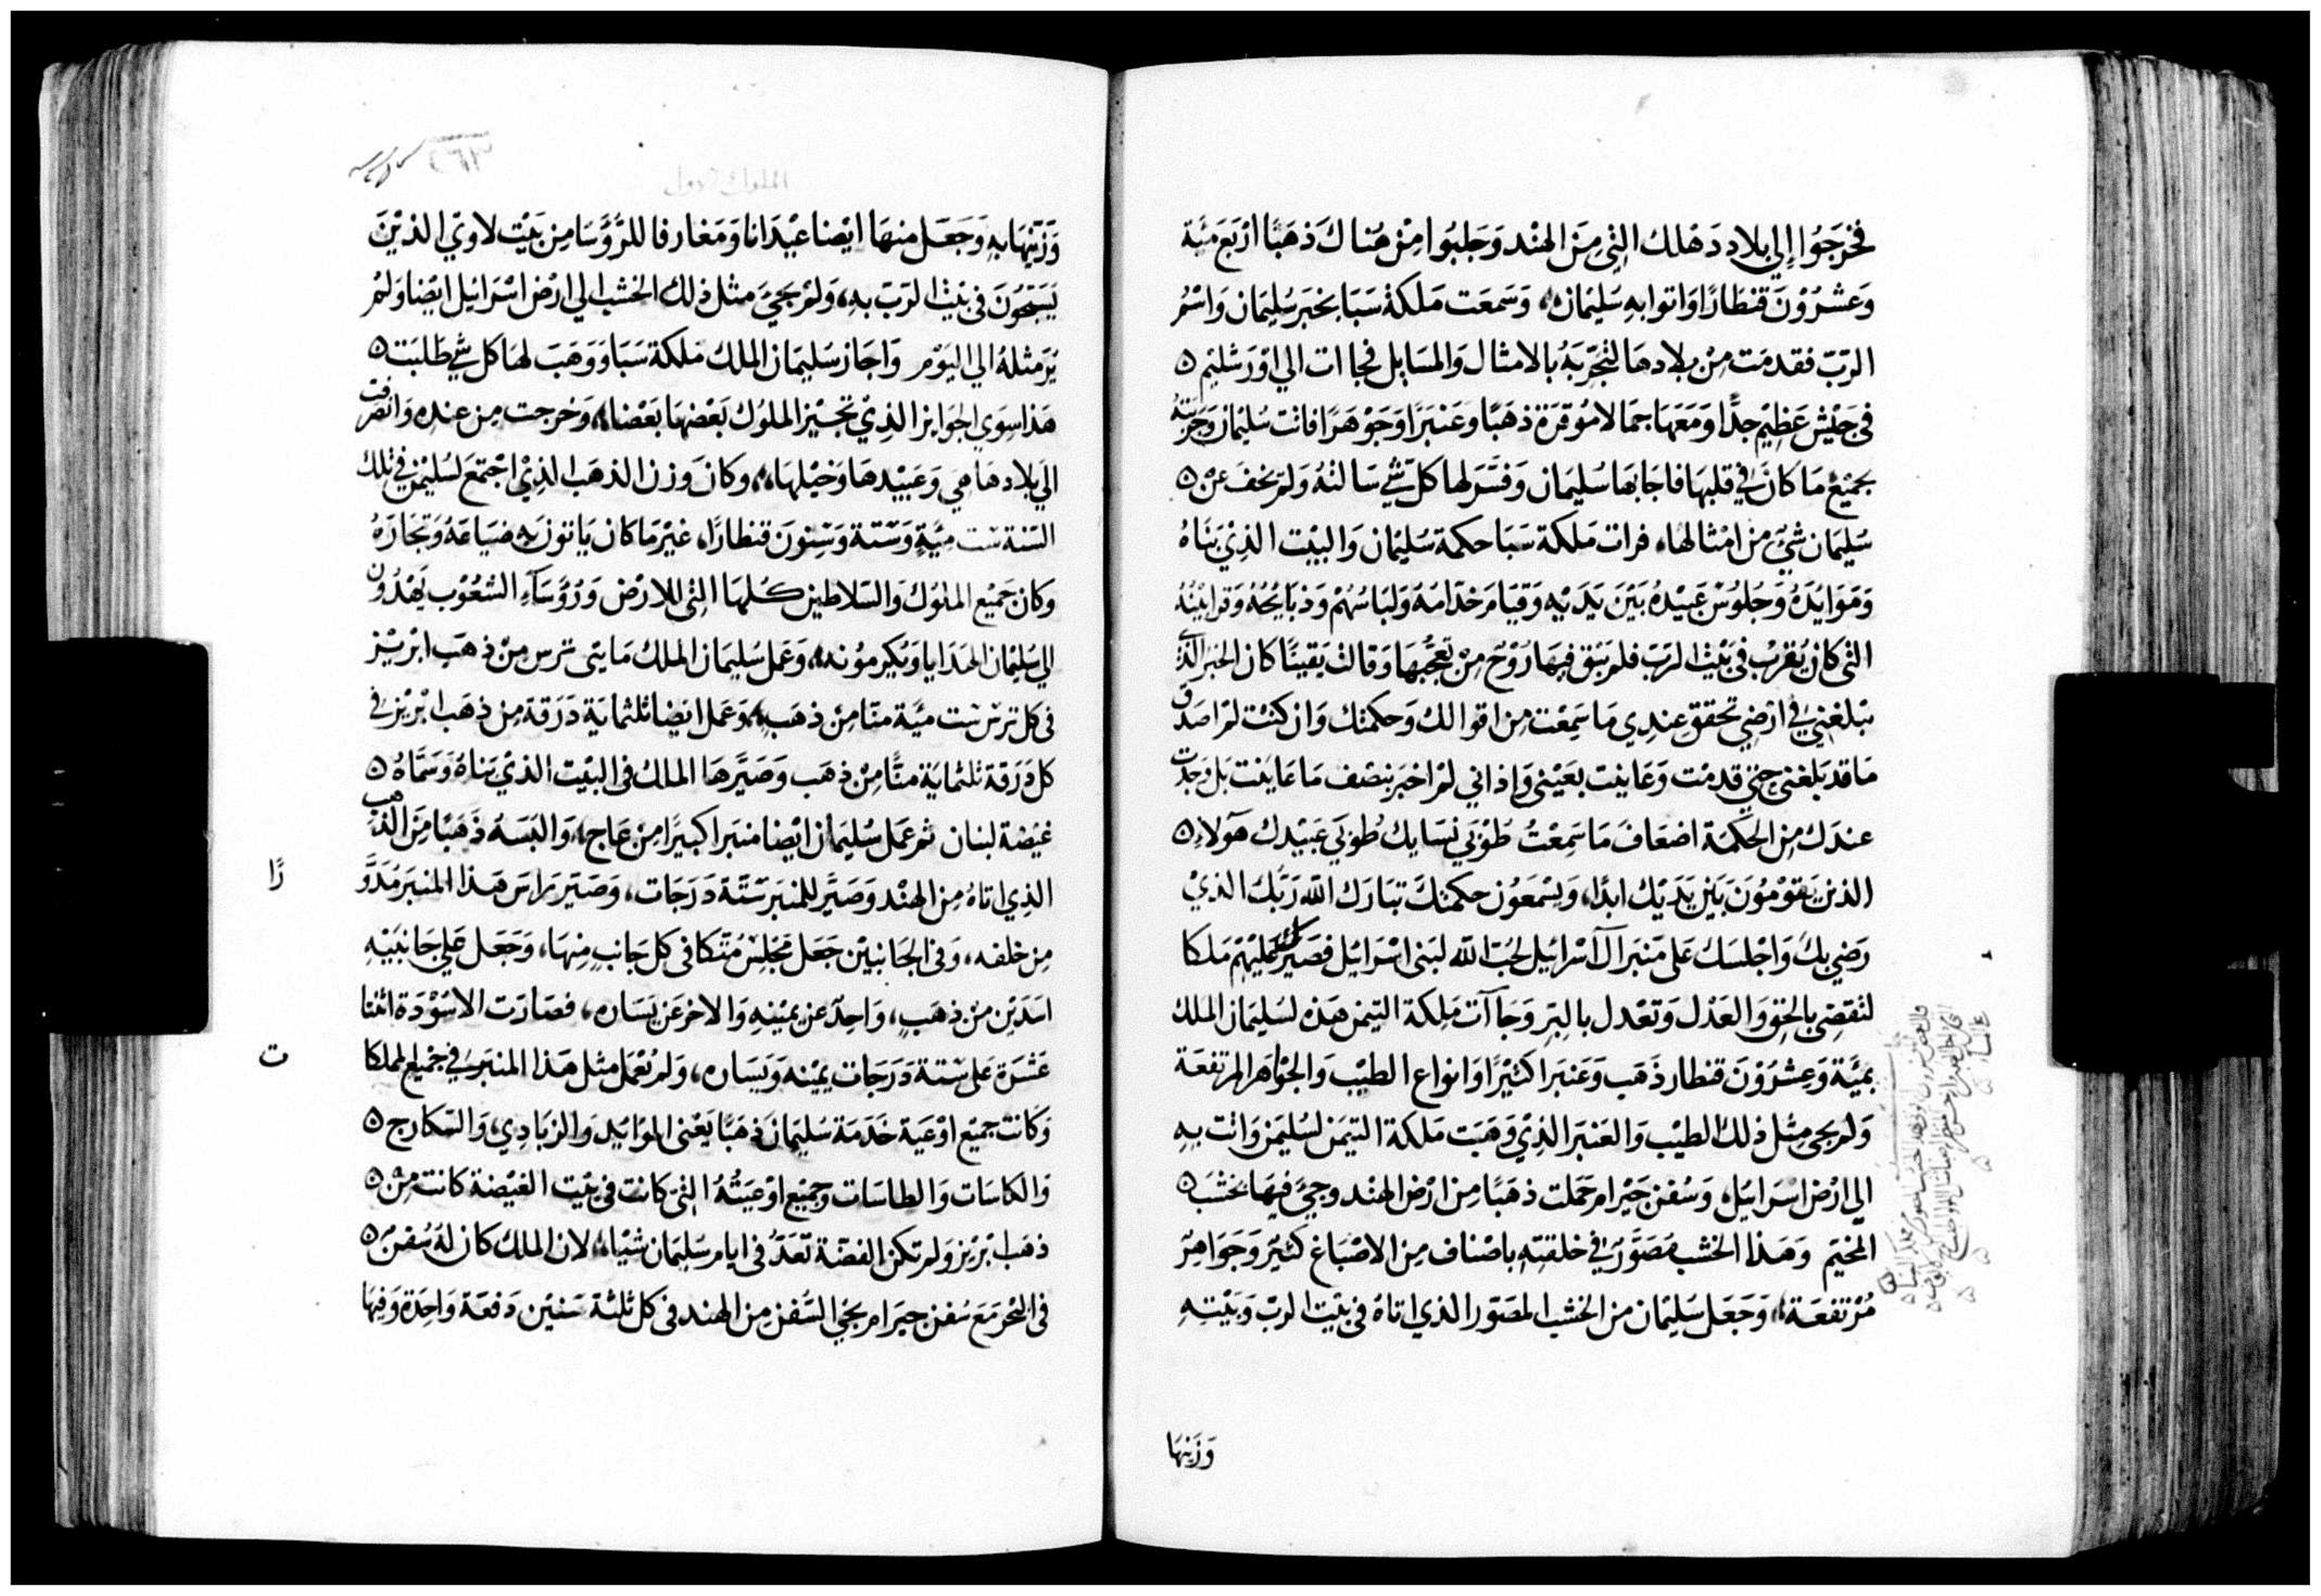 فخرجَوُا إلي بلاد دَهلك التي مِنَ الهند وَجلبُوا مِنْ هُناكَ ذهَبًا ارْبَعَ مئَة
وَعشرُوْنَ قنطارًا وَاتوا بهِ سُليمان، وَسَمعَت مَلكةْ سَبَا بخبَر سُليمَان وَاسْمُ
الربّ فقدمَت مِنْ بلادهَا لتجَرّبَهُ بالامثال وَالمسَايل فجاات الي اوْرَشليم ۵
في جَيْش عَظيْم جدًّا وَمَعَهَا جمَالا مُوْقرَة ذهَبًا وعَنبَرًا وَجَوْهَرًا فاتت سُليمَان وَجَرّبتهُ
بجَميْع مَا كانَ في قلبهَا فاجَابهَا سُليمَان وَفسَّر لها كلّ شي سَالتهُ وَلمْ يخفَ عنْ ۵
سُليمَان شيْ مِن امْثالهَا، فرات مَلكة سَبَا حكمة سُليمَان وَالبيْت الذِيْ بَنَاهُ
وَمَوَايدَهُ وَجُلوُسْ عَبيْدهُ بَيْنَ يَدَيْهِ وَقيَام خدّامَهُ وَلبَاسُهُمْ وَذبَايْحُهُ وَقرابيْنهُ
التى كان يُقربْ في بَيْتْ الرَبّ فلم يَبق فيهَا رُوْحَ مِنْ تعجّبهَا وَقالت يَقينًا كان الخبَر الذي
بَلغَنى في ارْضي تحققِ عندِي مَا سَمعْت مِن اقوالك وَحكمتك وَان كنت لمْ اصَدق
مَا قد بَلغنى حَتى قدمْت وَعَاينت بعَيْنى وَاذ اني لمْ اخبَر بنصْف مَا عَايَنت بَل وَجَدت
عندَك مِن الحكمة اضعَافَ مَا سَمِعْتُ طوُبَي نسَايك طُوبَي عَبيْدك هَولاء ۵
الذين يَقوْمُوْنَ بَيْن يَدَيْك ابدًا، وَيسْمَعُون حكمتكَ تبَارَك الله رَبّكَ الذيْ
رَضيَ بكَ وَاجْلسَك عَلى مَنبَر ال اسْرَائيل لحُبّ الله لبَنى اسْرَائيل فصَيّرك عَليْهمْ مَلكا
لتقضِي بالحَق وَالعَدْل وَتعْدل بالبِر وَجَاآت مَلكة التيمن هَذه لسُليمَان الملك
بميَّة وَعِشرُوْنَ قنطار ذَهَب وَعَنبَرا كثيْرًا وَانواع الطيْب وَالجوَاهَر المرتفعَة
وَلم يجي مِثل ذلك الطيْب وَالعَنبَر الذِيْ وَهَبَت مَلكة التيمَن لسُليمَن وَاتت بهِ
الي ارْض اسْرَائيل، وَسُفن حَيْرام حَمَلت ذهَبًا مِن ارْض الهنْد وجيْ فيهَا بخشبْ ۵
المخيَم وَهَذا الخشب مُصَوَّرْ في خلقتهِ باصْناف مِن الاصْبَاغ كثيْر وَجَوَاهرْ
مُرْتفعَة، وَجَعَل سُليمَان من الخشب المصَوّر الذي اتاهُ في بَيْت الربّ وَبَيْتهِ
وَزَينهَا
الملوك الاول
٢٦٣
وَزَينهَا بهِ وَجَعَل منهَا ايْضا عيْدَانا وَمَعَارفا للرُّؤسَا مِن بَيْت لاوِيْ الذيْنَ
يُسَبحُوْنَ في بَيْت الربّ بهِ، وَلمْ يجيْ مثل ذلك الخشب الي ارْض اسْرَائيل ايْضا وَلمْ
يَرَ مثلهُ الي اليَوْم وَاجَاز سُليمَان الملك مَلكة سَبَا وَوَهَبَ لهَا كل شي طَلبَت ۵
هَذا سِوَي الجَوَايز الذِيْ تجيْز الملوُك بَعْضهَا بَعْضا، وَخرجت مِن عندهِ وَانصَرفت
الَي بلادهَا هي وَعَبيْدهَا وَخيْلهَا، وكانَ وَزن الذهَب الذِيْ اجْتمَعَ لسُليْمن في تلك
السَنة ست مِيَّة وَسَتة وَسِتونَ قنطارًا، غيْر مَا كان يَاتونَ به ضيَاعَهُ وَتجَارَهُ
وَكان جَميْع الملوْك وَالسَلاطين كلهَا التى للارْض وَرُؤسَاء الشعُوْب يَهْدُوْن
الي سُليمَان الهَدَايا وَيُكرمُوْنه، وَعَمل سُليمَان الملك مَايتى ترس مِنْ ذهَب ابْريْز
في كل ترسْ ست ميَّة منّا مِنْ ذهَب، وَعَمل ايْضا ثلثمايَة دَرَقة مِن ذهَب ابْريْز في
كل دَرَقة ثلثمايَة منًّا مِنْ ذهَب وَصَيَّرهَا الملك في البَيْت الذيْ بَناهُ وَسَمَّاهُ ۵
غيْضة لبنان ثم عَمل سُليمَان ايْضا منبَرا كبيْرًا مِنْ عَاج، وَالبَسَهُ ذَهَبًا مِنَ الذهب
الذِي اتاهُ مِن الهنْد وَصَيَّر للمنبَر سَتّة دَرَجَات، وَصَيّر رَاسَ هَذا المنبَر مُدَوَّ
رًا
مِن خلفه، وَفي الجَانبَيْن جَعَل مجْلِسْ مُتكا في كل جَانبٍ مِنهَا، وَجَعَل عَلي جَانبَيْهِ
اسَدَيْن مِنْ ذهَبٍ، وَاحِدْ عَن يميْنهِ وَالاخر عَن يَسَاره، فصَارَت الاسْوْدَة اثنا
عَشرَة عَلى سَتة دَرَجَات يميْنه وَيَسَاره، وَلمْ يُعْمَل مثل هَذا المنبَر في جَميْع المملكا
ت
وَكانت جميْع اوْعيَة خَدَمَة سُليمَان ذهَبًا يَعْنى الموَايْد وَالزبَادِي، وَالسَكارج ۵
وَالكاسَات وَالطاسَات وَجميْع اوْعيَتهُ التى كانت في بَيْت الغيْضة كانت مِنْ ۵
ذهَب ابْريْز وَلم تكن الفضّة تعَدُّ في ايام سُليمَان شيْا، لان الملك كان لهُ سُفنْ ۵
في البحْر مَعَ سُفن حيرَام يجي السُّفن مِن الهند في كل ثلثة سَنيْن دَفعَة وَاحِدَة وَفيْهَا